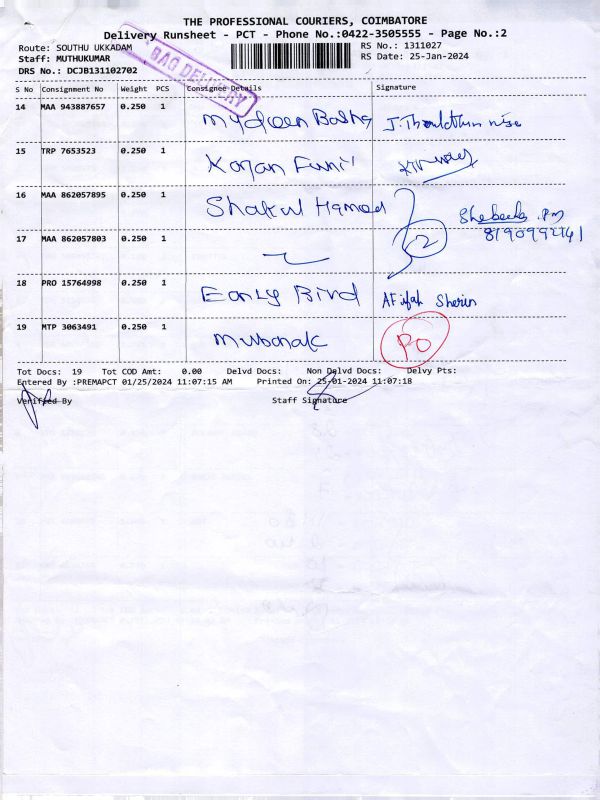 THE PROFESSIONAL COURIERS, COIMBATORE
Delivery Runsheet - PCT - Phone No.:0422-3505555 - Page No.:2
Route: SOUTHU UKKADAM RS No.: 1311027
Staff: MUTHUKUMAR RS Date: 25-Jan-2024
DRS No.: DCJB131102702
BAG DELIVERY
S No Consignment No Weight PCS Consignee Details Signature
14 MAA 943887657 0.250 1
15 TRP 7653523 0.250 1
16 MAA 862057895 0.250 1 Shakul Hameed
17 MAA 862057803 0.250 1 2
18 PRO 15764998 0.250 1 Early Bird Afifah Sherin
19 MTP 3063491 0.250 1 Mubarak
Tot Docs: 19 Tot COD Amt: 0.00 Delvd Docs: Non Delvd Docs: Delvy Pts:
Entered By :PREMAPCT 01/25/2024 11:07:15 AM Printed On: 25-01-2024 11:07:18
Verified By Staff Signature